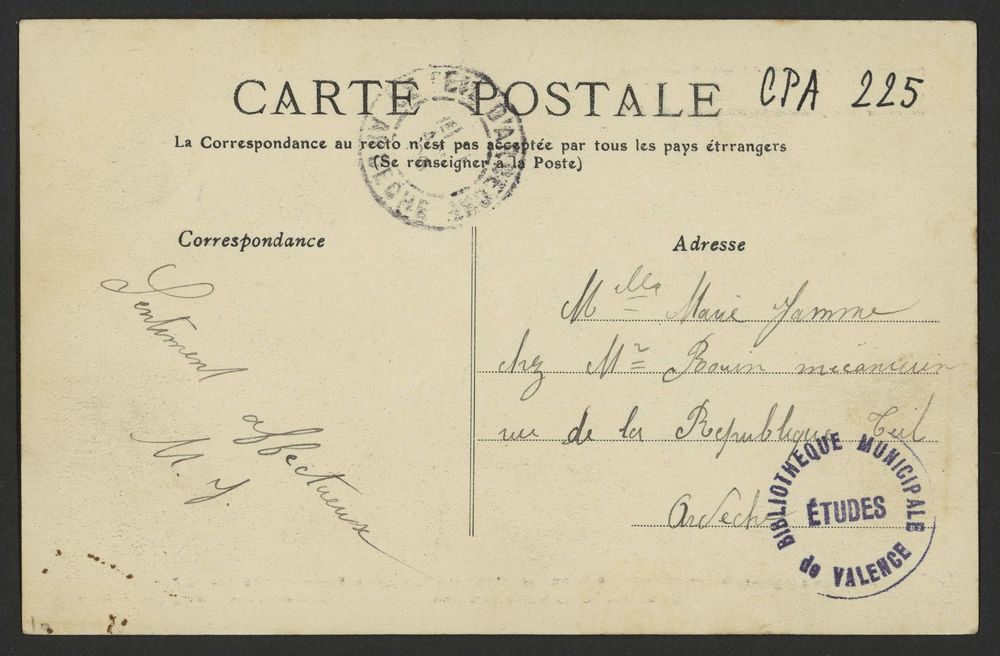 CARTE POSTALE
CPA 225
La Correspondance au recto n'est pas acceptée par tous les pays étrrangers
(Se renseigner à la Poste)
D'ARDÈCHE
ARDECHE
Correspondance
Sentiment
affectueux
M. J.
Adresse
Mlle Marie Jamme
chez Mr Bouin mécanicien
rue de la République Teil
Ardèche
BIBLIOTHEQUE MUNICIPALE
ÉTUDES
de VALENCE